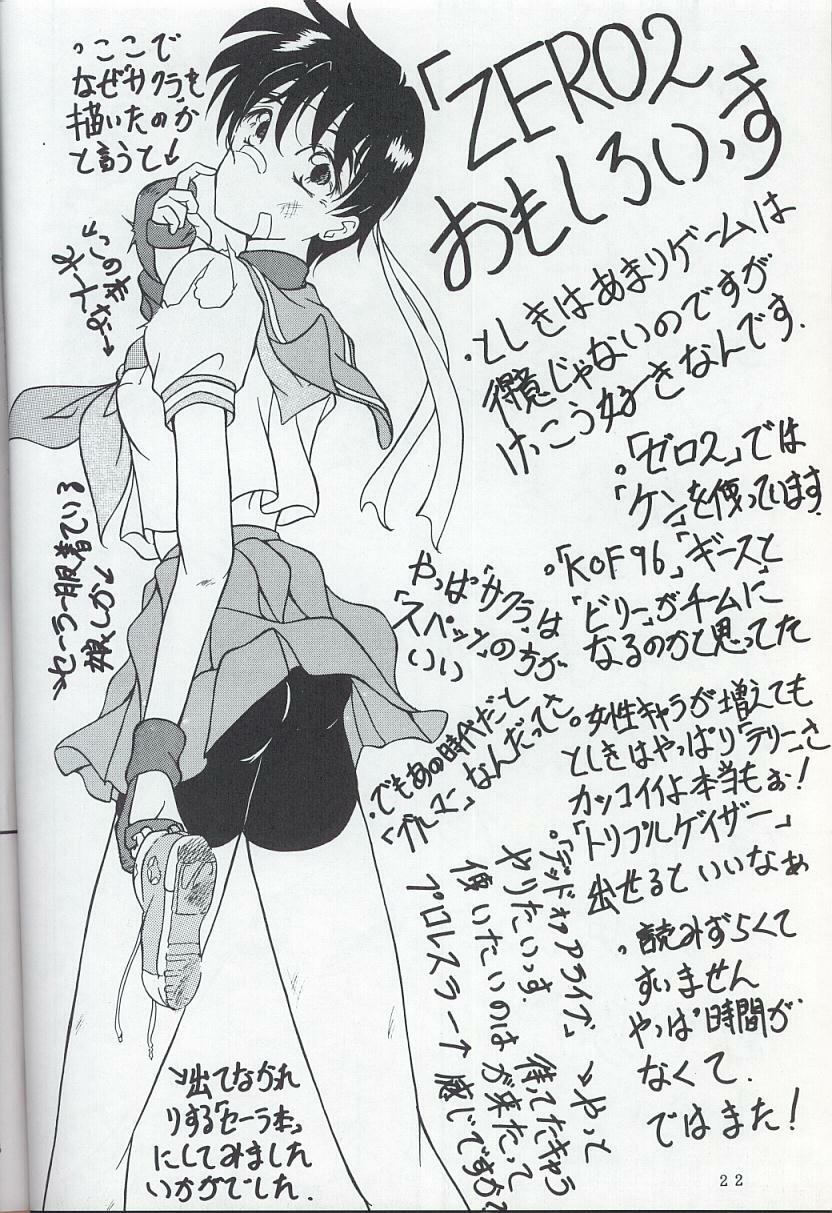 「ZERO2
おもしろいっす
・としきはあまりゲームは
得意じゃないのですが
けっこう好きなんです.
・「ゼロ2」では
「ケン」を使っています
・「KOF96」「ギース」と
「ビリー」がチームに
なるのかと思ってた
・女性キャラが増えても
としきはやっぱり「テリー」さ
カッコイイよ本当もぉ!
「トリプルゲイザー」
出せるといいなぁ
・読みずらくて
すいません
やっぱ時間が
なくて.
ではまた!
・ここで
なぜ「サクラ」を
描いたのか
と言うと↓
↘この本
↗のつ
やっぱ「サクラ」は
「スパッツ」の方が
いい
・でもあの時代だと
「ブルマ」なんだってさ
・「デッドオアアライブ」
やりたいっす.
使いたいのは
プロレスラー↑
↘やっと
待ってたキャラ
が来たって
感じですか?
↘出てながれ
りする「セーラ本」
にしてみました
いかがでした.
22